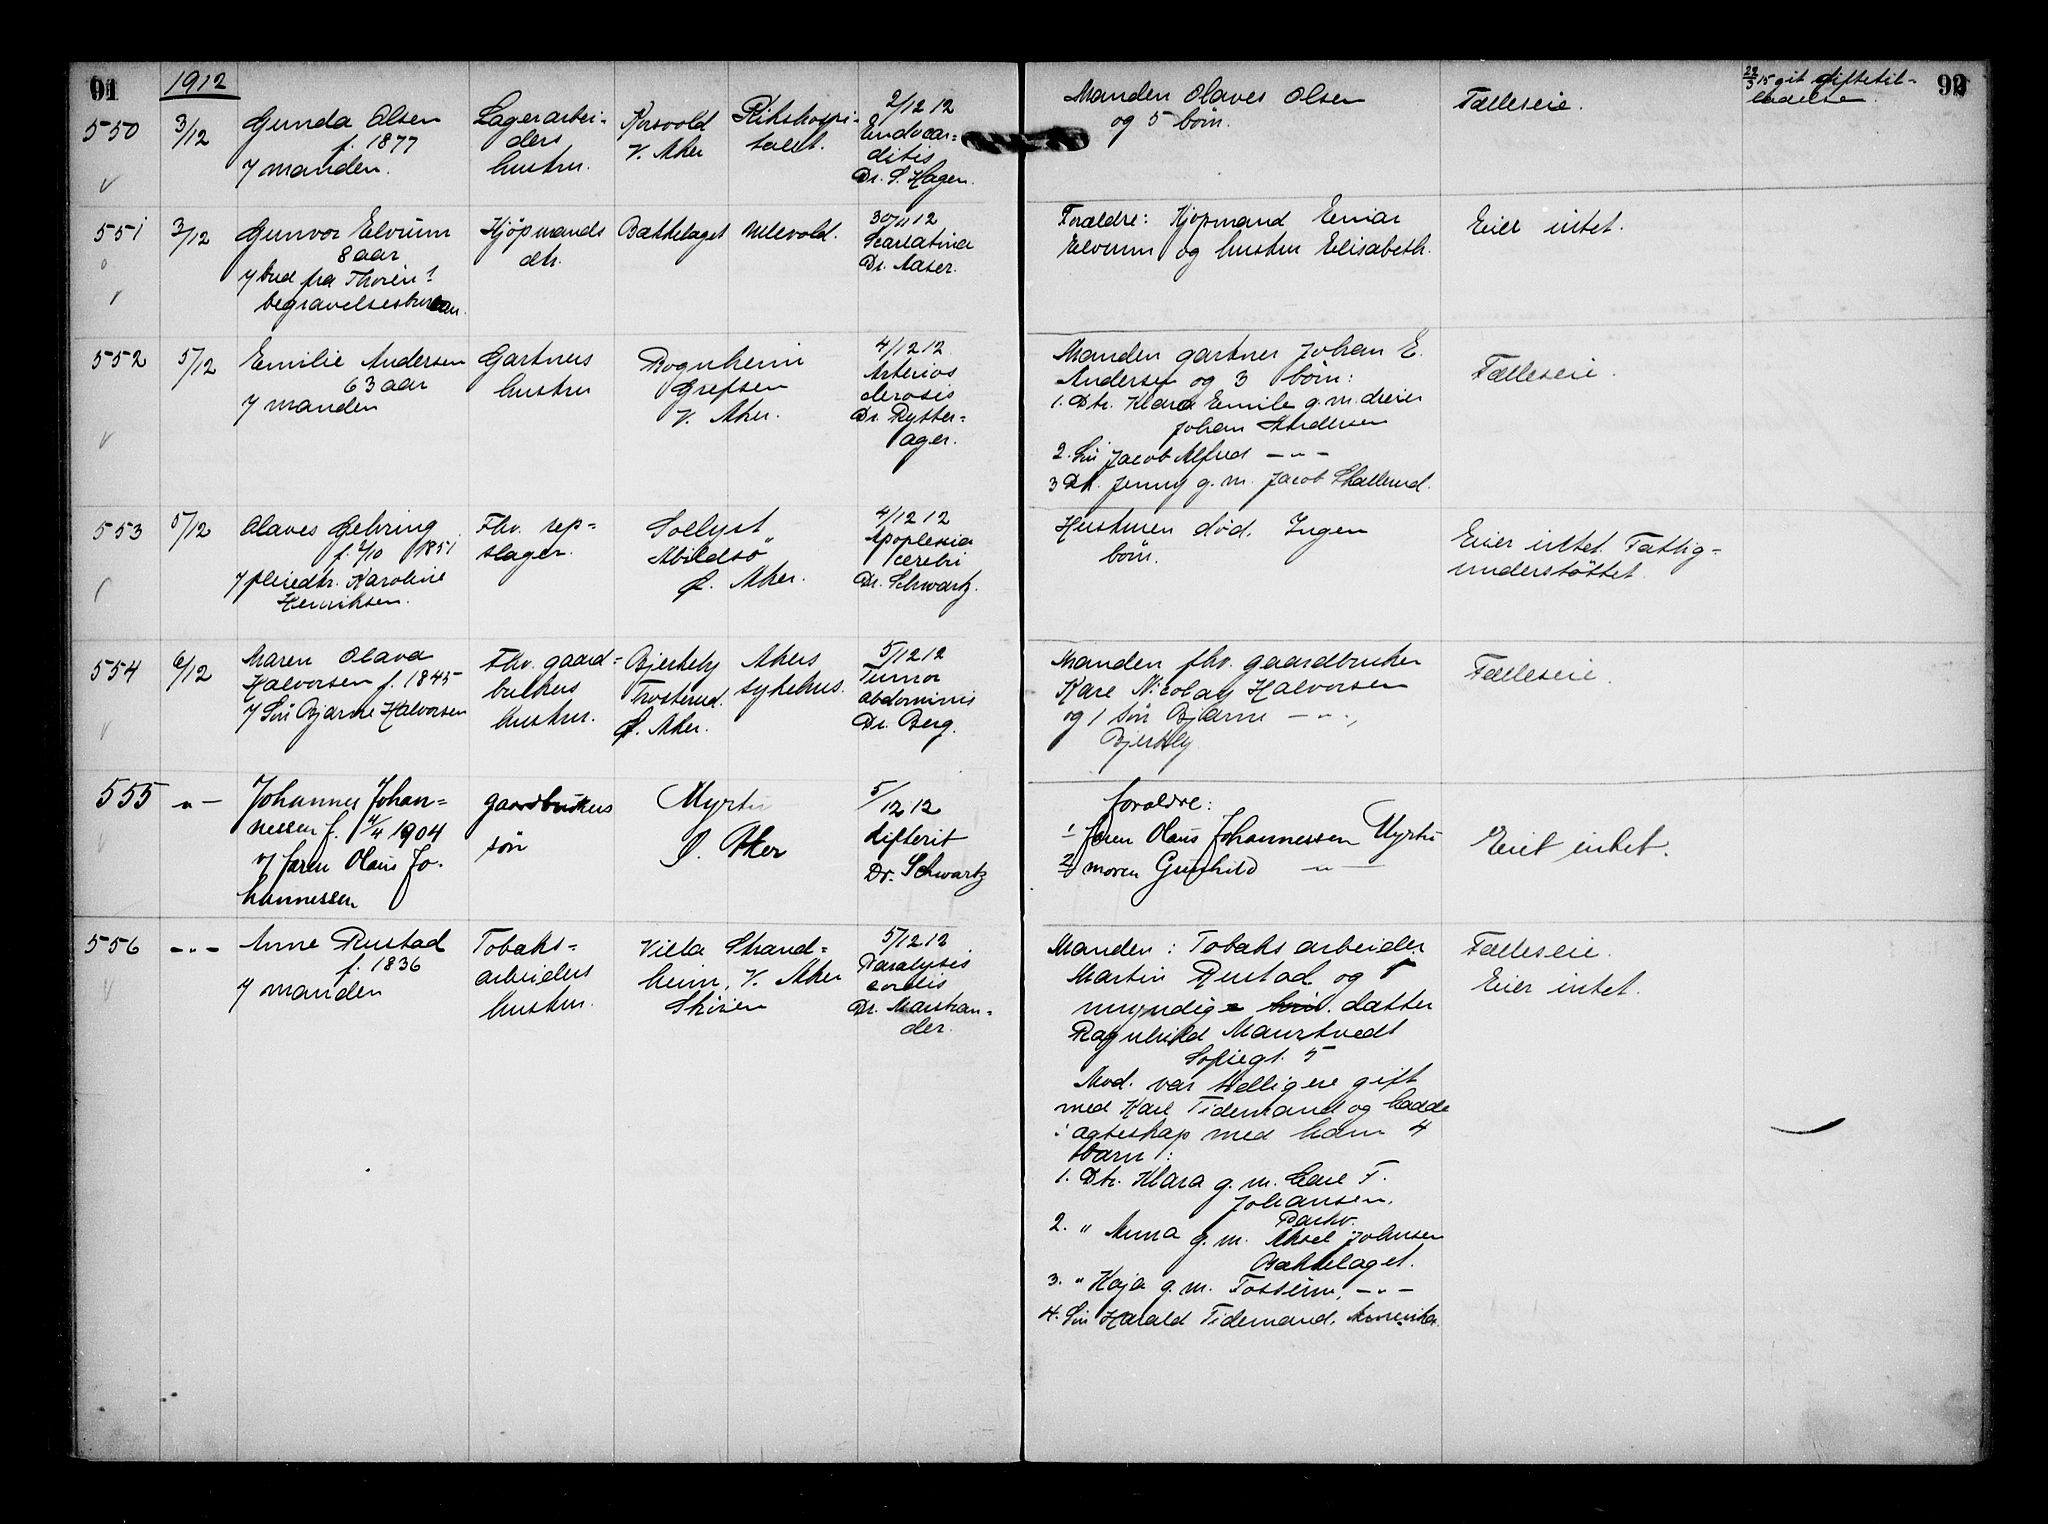 91
1912
92
550
3/12
Gunda Olsen
f. 1877
v/ manden.
Lagerarbei-
ders
hustru.
Korsvold
V. Aker
Rikshospi-
talet.
2/12 12
Endocar-
ditis
Dr. S. Hagen.
Manden Olaves Olsen
og 5 børn.
Fælleseie.
22/3 15 git skiftetil-
ladelse.
551
3/12
Gunvor Elvrum
8 aar
v/ bud fra Thorèn?
begravelsesbureau.
Kjøpmands
dtr.
Bækkelaget
Ullevold.
30/11 12
Scarlatina
Dr. Aaser.
Forældre: Kjøpmand Einar
Elvrum og hustru Elisabeth.
Eier intet.
552
5/12
Emilie Andersen
63 aar
v/ manden
Gartners
hustru
Rognheim
Grefsen
V. Aker.
4/12 12
Arterios
clerosis
Dr. Rytter-
ager.
Manden gartner Johan E.
Andersen og 3 børn:
1. Dtr. Klara Emile g.m. dreier
Johan Andersen
2. Søn Jacob Alfred -"-
3 Dtr. Jenny g.m. Jacob Skallerud.
Fælleseie.
553
5/12
Olaves Gehring
f. 7/10 1851
v/ pleiedtr. Karoline
Henriksen.
Fhv. rep-
slager.
Sollyst
Abildsø
Ø. Aker.
4/12 12
Apoplexia
cerebri
Dr. Schwartz.
Hustruen død. Ingen
børn.
Eier intet. Fattig-
understøttet.
554
6/12
Maren Olava
Halvorsen f. 1845
v/ Søn Bjarne Halvorsen
Fhv. gaard-
brukers
hustru.
Bjerkely
Trosterud.
Ø. Aker.
Akers
sykehus.
5/12 12
Tumor
abdominis
Dr. Berg.
Manden fhv. gaardbruker
Karl Nicolay Halvorsen
og 1 søn Bjarne -"-,
Bjerkely
Fælleseie.
555
-"-
Johannes Johan-
nessen f. 4/4 1904
v/ faren Olaus Jo-
hannessen
gaardbrukers
søn
Myrer
Ø. Aker
5/12 12
difterit
Dr. Schwartz
forældre:
1 faren Olaus Johannessen
2 moren Gunhild -"-
Eiet intet.
556
-"-
Anne Rustad
f. 1836
v/ manden
Tobaks-
arbeiders
hustru.
Villa Strand-
heim, V. Aker
Skøien
5/12 12
Paralysis
cordis
Dr. Mastran-
der.
Manden: Tobaksarbeider
Martin Rustad og 1
myndig datter
Ragnhild Maurtvedt
Sofiegt. 5
Avd. var tidligere gift
med Karl Tidemand og hadde
i ægteskap med ham 4
barn:
1. Dtr. Klara g.m. Carl F.
Johansen.
2. " Anna g.m. Aksel Johnsen
Bækkelaget.
3. " Kaja g.m. -"-
4. Søn Harald Tidemand, Amerika.
Fælleseie.
Eier intet.